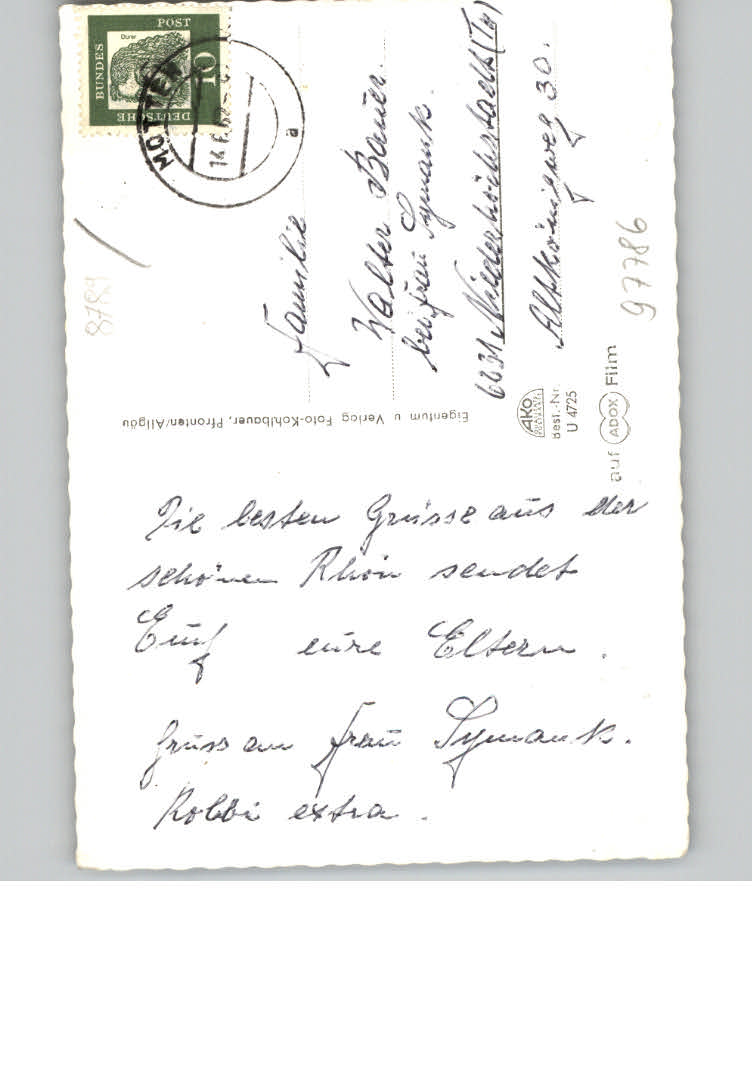 Die besten Grüsse aus der
schönen Rhön sendet
Euch eure Eltern.
Gruss an Frau Symank.
Robbi extra.
Familie
Walter Bauer.
bei Frau Symank.
6231 Niederhöchstadt (Ts)
Altkönigweg 30.
DEUTSCHE
BUNDES
POST
10
Dürer
MOTTEN
14.6.
a
8789
97786
Eigentum u Verlag Foto-Kohlbauer, Pfronten/Allgäu
AKO
Best.-Nr.
U 4725
auf ADOX Film